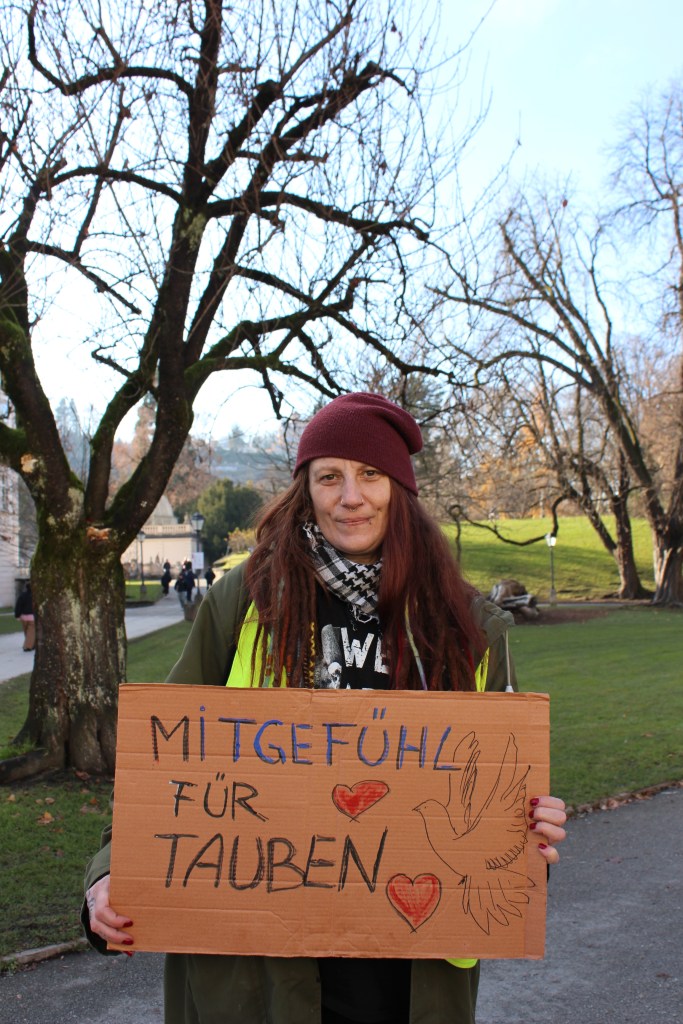 WE
MITGEFÜHL
FÜR
TAUBEN